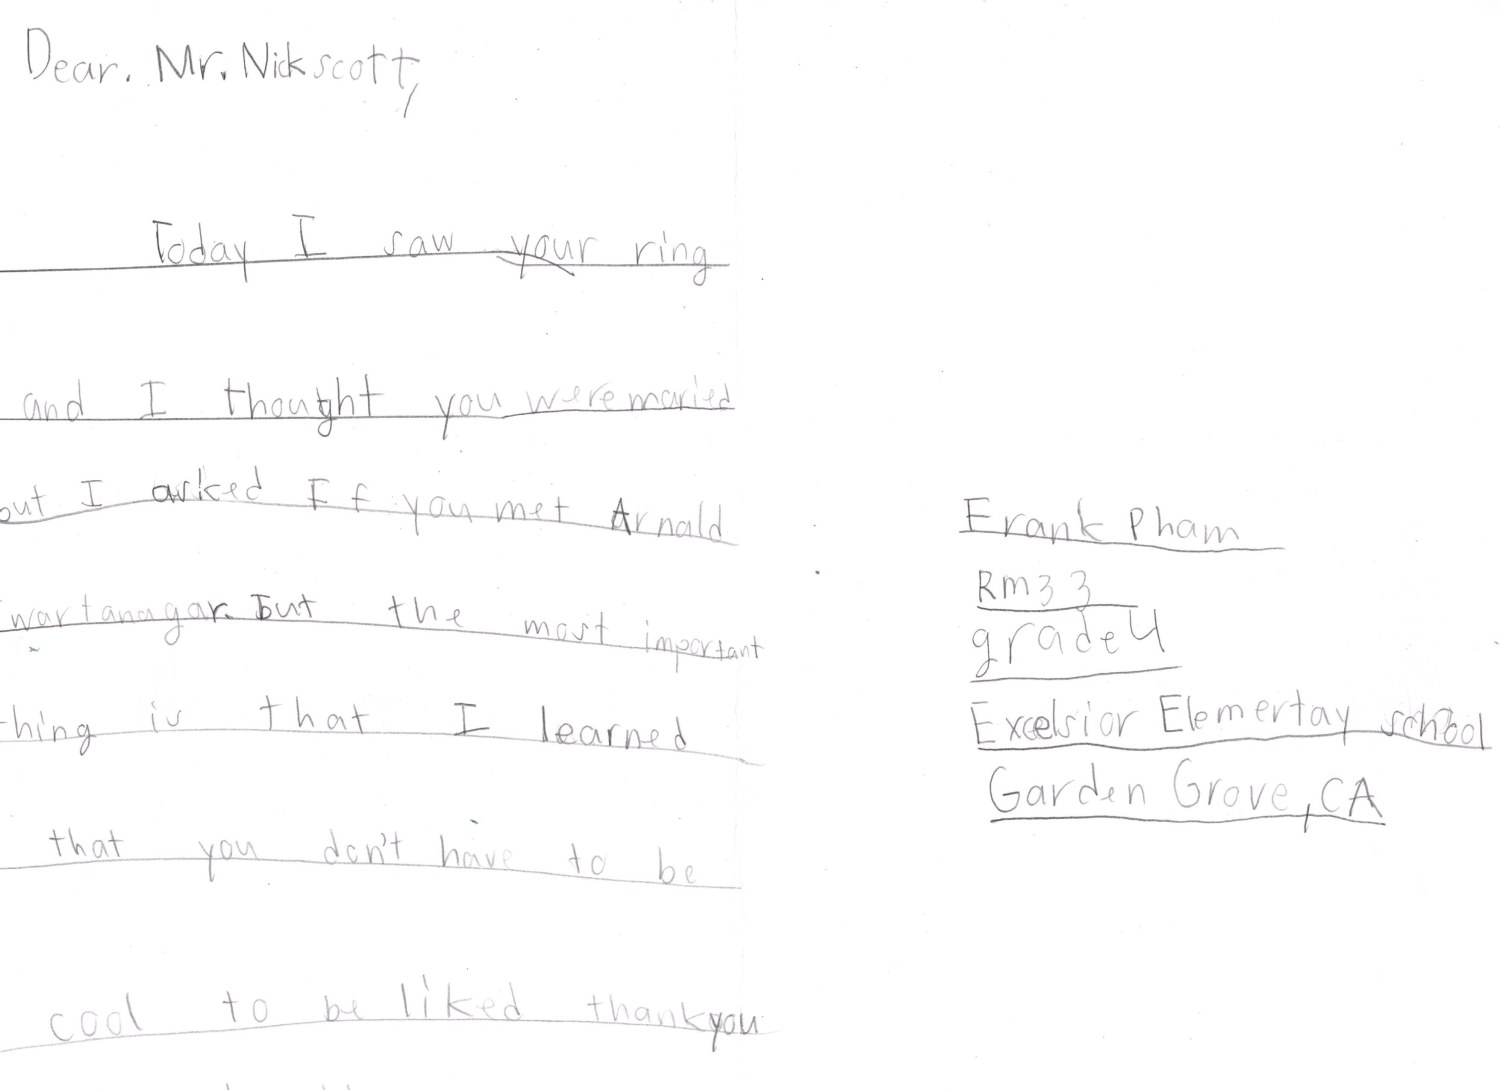 Dear. Mr. Nick scott,
Today I saw your ring
and I thought you were maried
but I arked If you met Arnald
wartanagar. but the most important
thing is that I learned
that you don't have to be
cool to be liked thank you
Frank Pham
Rm 33
grade 4
Excelsior Elemertay school
Garden Grove, CA